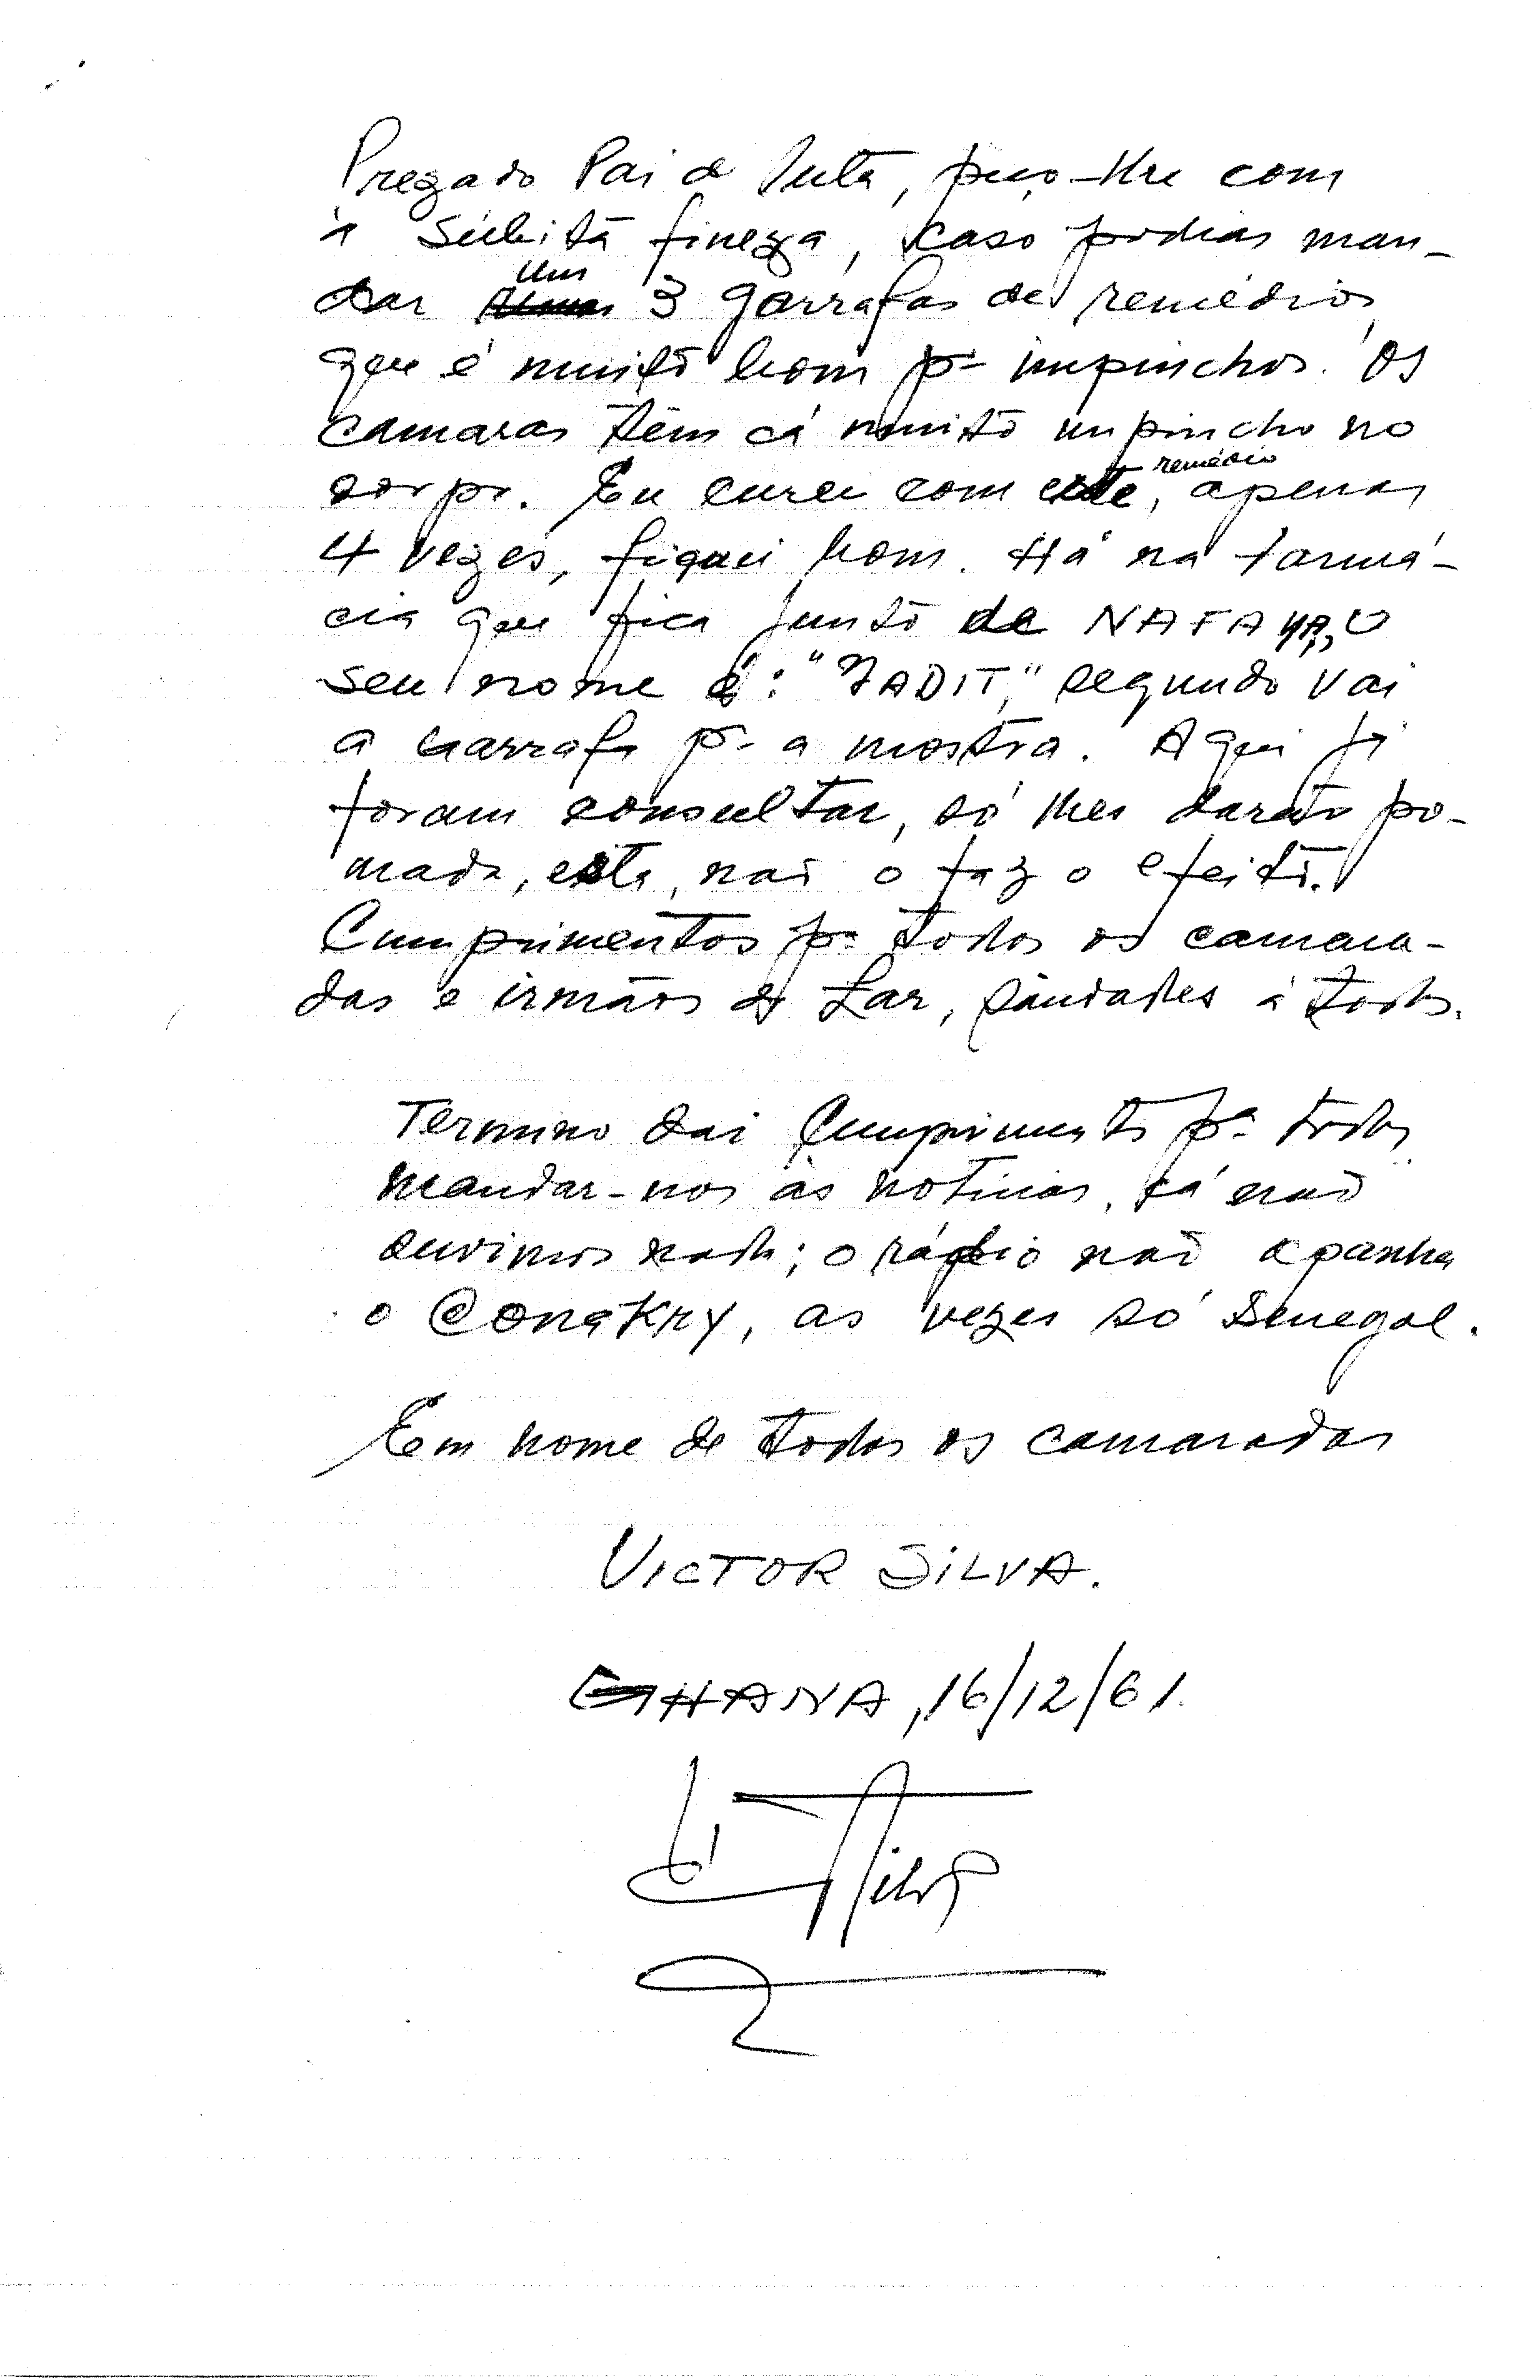 Prezado Pai d luta, peço-lhe com
1 súbita fineza, caso podias man-
dar uns 3 garrafas de remédios
que é muito bom p- impinchos. Os
camaras têm cá muito impincho no
corpo. Eu curei com este remédio, apenas
4 vezes, fiquei bom. Há na farmá-
cia que fica junto de NAFAYA, O
seu nome é: "ZADIT," segundo vai
a garrafa p- a mostra. Aqui já
foram consultar, só lhes darão po-
mada, esta, não o faz o efeito.
Cumprimentos pª todos os camara-
das e irmãos d Lar, saudades á todos.
Termino dai Cumprimentos pª todos
mandar-nos as notícias, cá não
ouvimos nada; o rádio não apanha
o Conakry, as vezes só Senegal.
Em nome de todos os camaradas
VICTOR SILVA.
GHANA, 16/12/61.
Silva